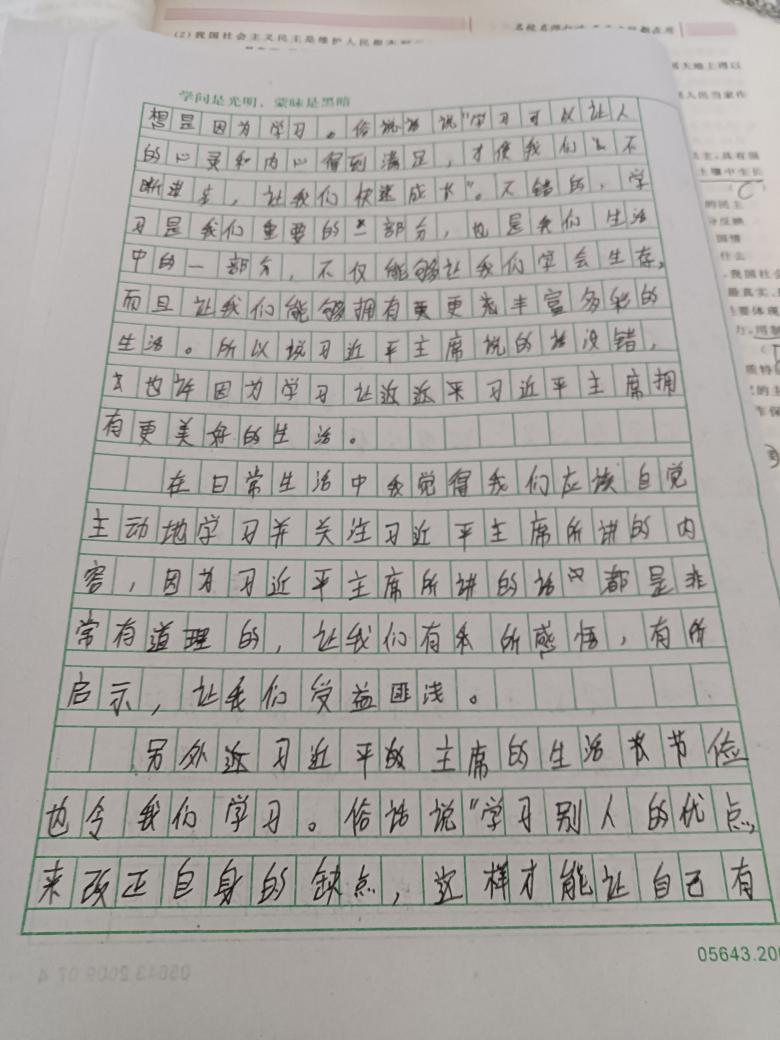 (2)我国社会主义民主是维护人民根本利
学问是光明，蒙昧是黑暗
想是因为学习。俗话话说"学习可以让人
的心灵和内心得到满足，才使我们不
断进步，让我们快速成长"。不错的，学
习是我们重要的一部分，也是我们生活
中的一部分，不仅能够让我们学会生存，
而且让我们能够拥有更丰富多彩的
生活。所以说习近平主席说的话没错，
也许因为学习让习近平主席拥
有更美好的生活。
在日常生活中我觉得我们应该自觉
主动地学习并关注习近平主席所讲的内
容，因为习近平主席所讲的话都是非
常有道理的，让我们有所感悟，有所
启示，让我们受益匪浅。
另外近习近平的主席的生活节俭
也令我们学习。俗话说"学习别人的优点，
来改正自身的缺点，这样才能让自己有
05643.200
大地上得以
人民当家作
主，具有强
土壤中生长
的民主
分反映
国情
什么
，我国社会
最真实、
要体现
质特